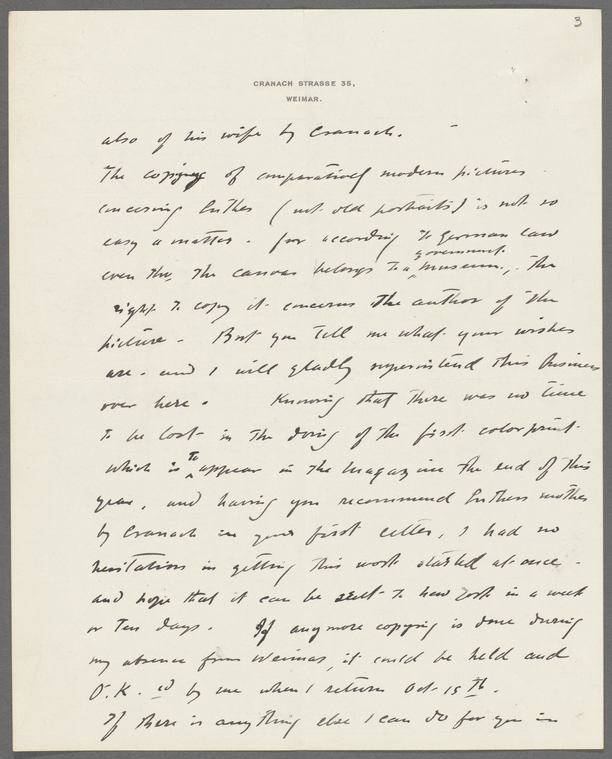 3
CRANACH STRASSE 35,
WEIMAR.
also of his wife by Cranach.
The copying of comparatively modern pictures
concerning Luther (not old portraits) is not so
easy a matter - for according to German law
government
even tho, the canvas belongs to a museum, - the
right to copy it concerns the author of the
picture - But you tell me what your wishes
are - and I will gladly superintend this business
over here. Knowing that there was no time
to be lost in the doing of the first color print
to
which is appear in the magazine the end of this
year, and having you recommend Luthers mother
by Cranach in your first letter, I had no
hesitation in getting this work started at once -
and hope that it can be sent to New York in a week
or ten days. If any more copying is done during
my absence from Weimar, it could be held and
O.K. ed by me when I return Oct. 15th.
If there is anything else I can do for you in